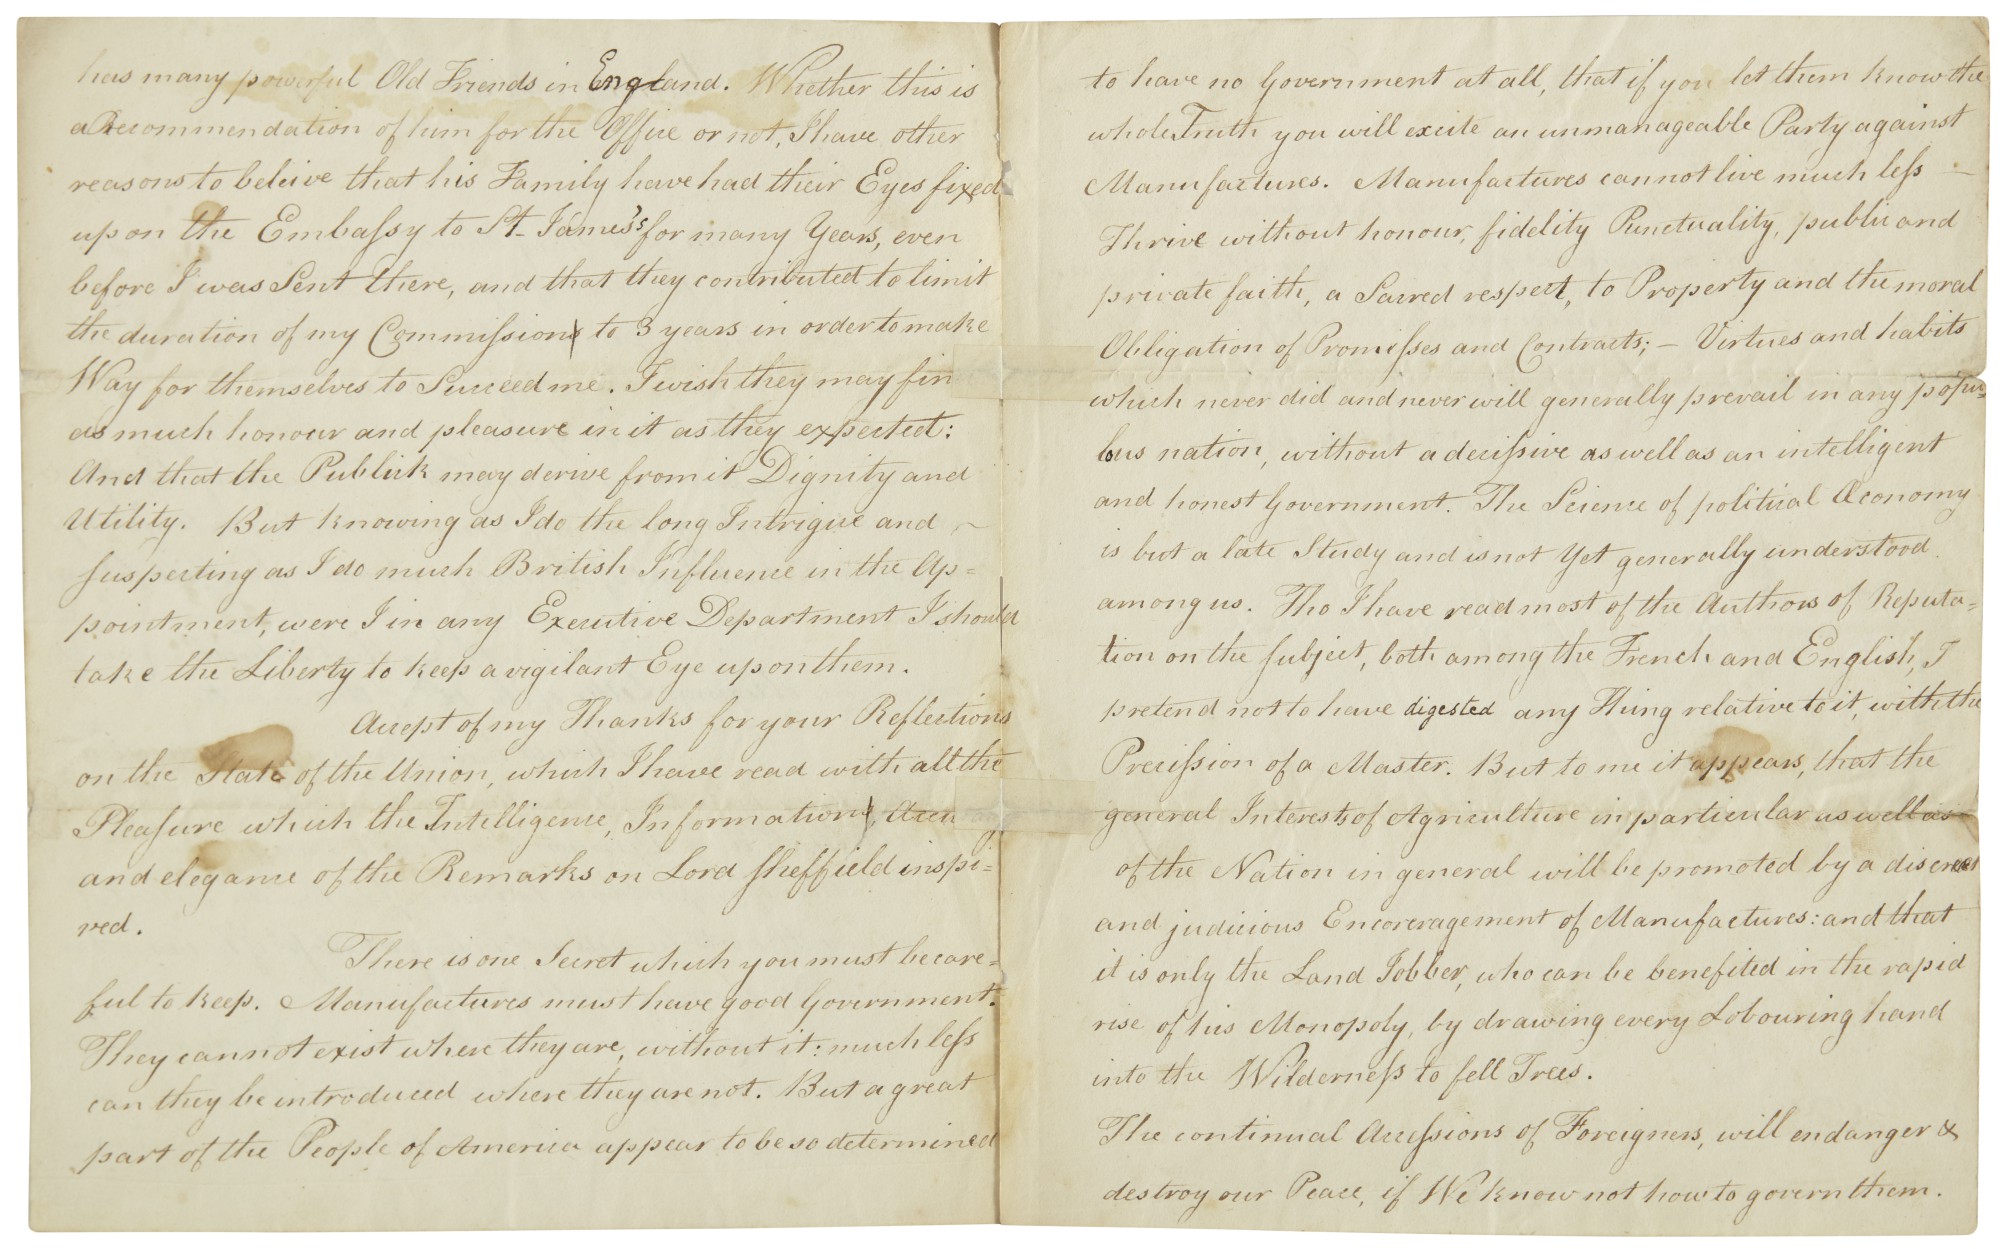 has many powerful Old Friends in England. Whether this is
a Recommendation of him for the Office or not, I have other
reasons to beleive that his Family have had their Eyes fixed
upon the Embassy to St. James's for many Years, even
before I was Sent there, and that they contributed to limit
the duration of my Commission to 3 years in order to make
Way for themselves to Succeed me. I wish they may fin
as much honour and pleasure in it as they expected:
And that the Publick may derive from it Dignity and
Utility. But knowing as I do the long Intrigue and
suspecting as I do much British Influence in the Ap=
pointment, were I in any Executive Department I should
take the Liberty to keep a vigilant Eye upon them.
Accept of my Thanks for your Reflections
on the State of the Union, which I have read with all the
Pleasure which the Intelligence, Information, Accu
and elegance of the Remarks on Lord Sheffield inspi=
red.
There is one Secret which you must be care=
ful to keep. Manufactures must have good Government.
They cannot exist where they are, without it: much less
can they be introduced where they are not. But a great
part of the People of America appear to be so determined
to have no Government at all, that if you let them know the
whole Truth you will excite an unmanageable Party against
Manufactures. Manufactures cannot live much less
Thrive without honour, fidelity Punctuality, public and
private faith, a Sacred respect, to Property and the moral
Obligation of Promisses and Contracts; – Virtues and habits
which never did and never will generally prevail in any popu=
lous nation, without a decissive as well as an intelligent
and honest Government. The Science of political Œconomy
is but a late Study and is not Yet generally understood
among us. Tho I have read most of the Authors of Reputa=
tion on the subject, both among the French and English, I
pretend not to have digested any Thing relative to it, with the
Precission of a Master. But to me it appears, that the
general Interests of Agriculture in particular as well as
of the Nation in general will be promoted by a discreet
and judicious Encoreragement of Manufactures: and that
it is only the Land Jobber, who can be benefited in the rapid
rise of his Monopoly, by drawing every Lobouring hand
into the Wilderness to fell Trees.
The continual Accessions of Foreigners, will endanger &
destroy our Peace, if We know not how to govern them.